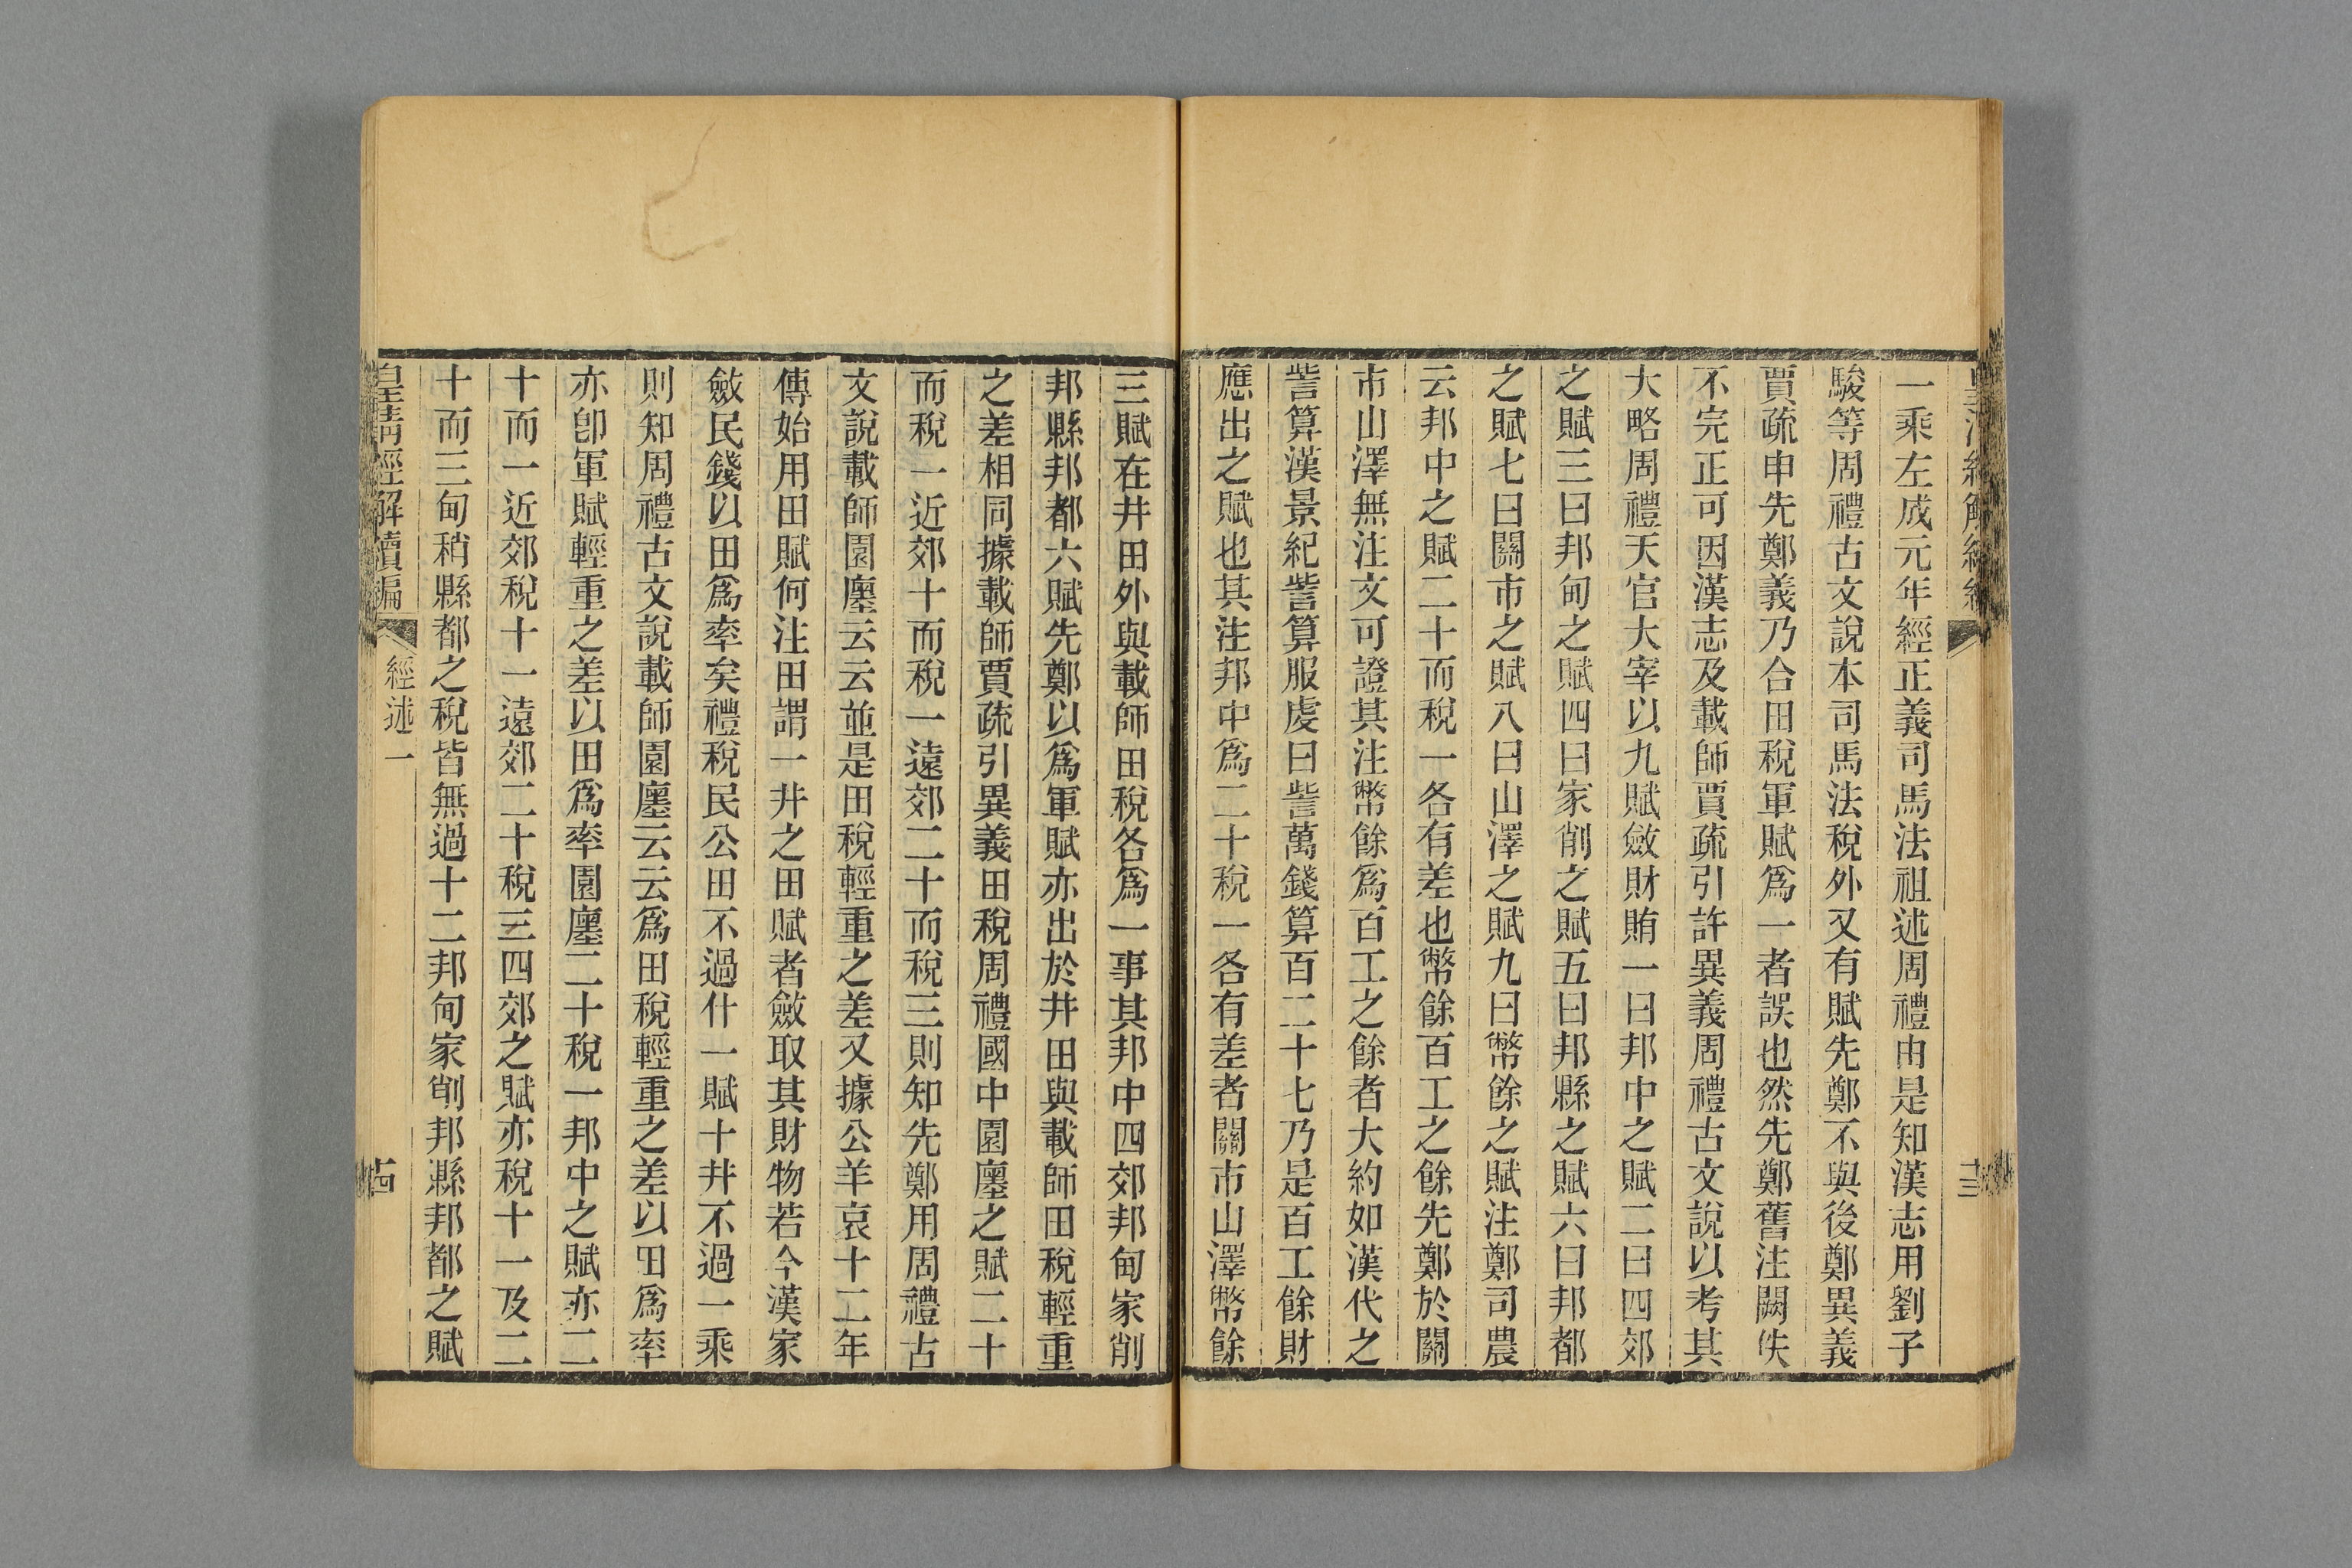 一乘左成元年經正義司馬法祖述周禮由是知漢志用劉子
駿等周禮古文說本司馬法稅外又有賦先鄭不與後鄭異義
賈疏申先鄭義乃合田稅軍賦爲一者誤也然先鄭舊注闕佚
不完正可因漢志及載師賈疏引許異義周禮古文說以考其
大略周禮天官大宰以九賦斂財賄一曰邦中之賦二曰四郊
之賦三曰邦甸之賦四曰家削之賦五曰邦縣之賦六曰邦都
之賦七曰關市之賦八曰山澤之賦九曰幣餘之賦注鄭司農
云邦中之賦二十而稅一各有差也幣餘百工之餘先鄭於關
市山澤無注文可證其注幣餘爲百工之餘者大約如漢代之
訾算漢景紀訾算服虔曰訾萬錢算百二十七乃是百工餘財
應出之賦也其注邦中爲二十稅一各有差者關市山澤幣餘
三賦在井田外與載師田稅各爲一事其邦中四郊邦甸家削
邦縣邦都六賦先鄭以爲軍賦亦出於井田與載師田稅輕重
之差相同據載師賈疏引異義田稅周禮國中園廛之賦二十
而稅一近郊十而稅一遠郊二十而稅三則知先鄭用周禮古
文說載師園廛云云並是田稅輕重之差又據公羊哀十二年
傳始用田賦何注田謂一井之田賦者斂取其財物若今漢家
斂民錢以田爲率矣禮稅民公田不過什一賦十井不過一乘
則知周禮古文說載師園廛云云爲田稅輕重之差以田爲率
亦卽軍賦輕重之差以田爲率園廛二十稅一邦中之賦亦二
十而一近郊稅十一遠郊二十稅三四郊之賦亦稅十一及二
十而三甸稍縣都之稅皆無過十二邦甸家削邦縣邦都之賦
皇淸經解續編
經述一
十四